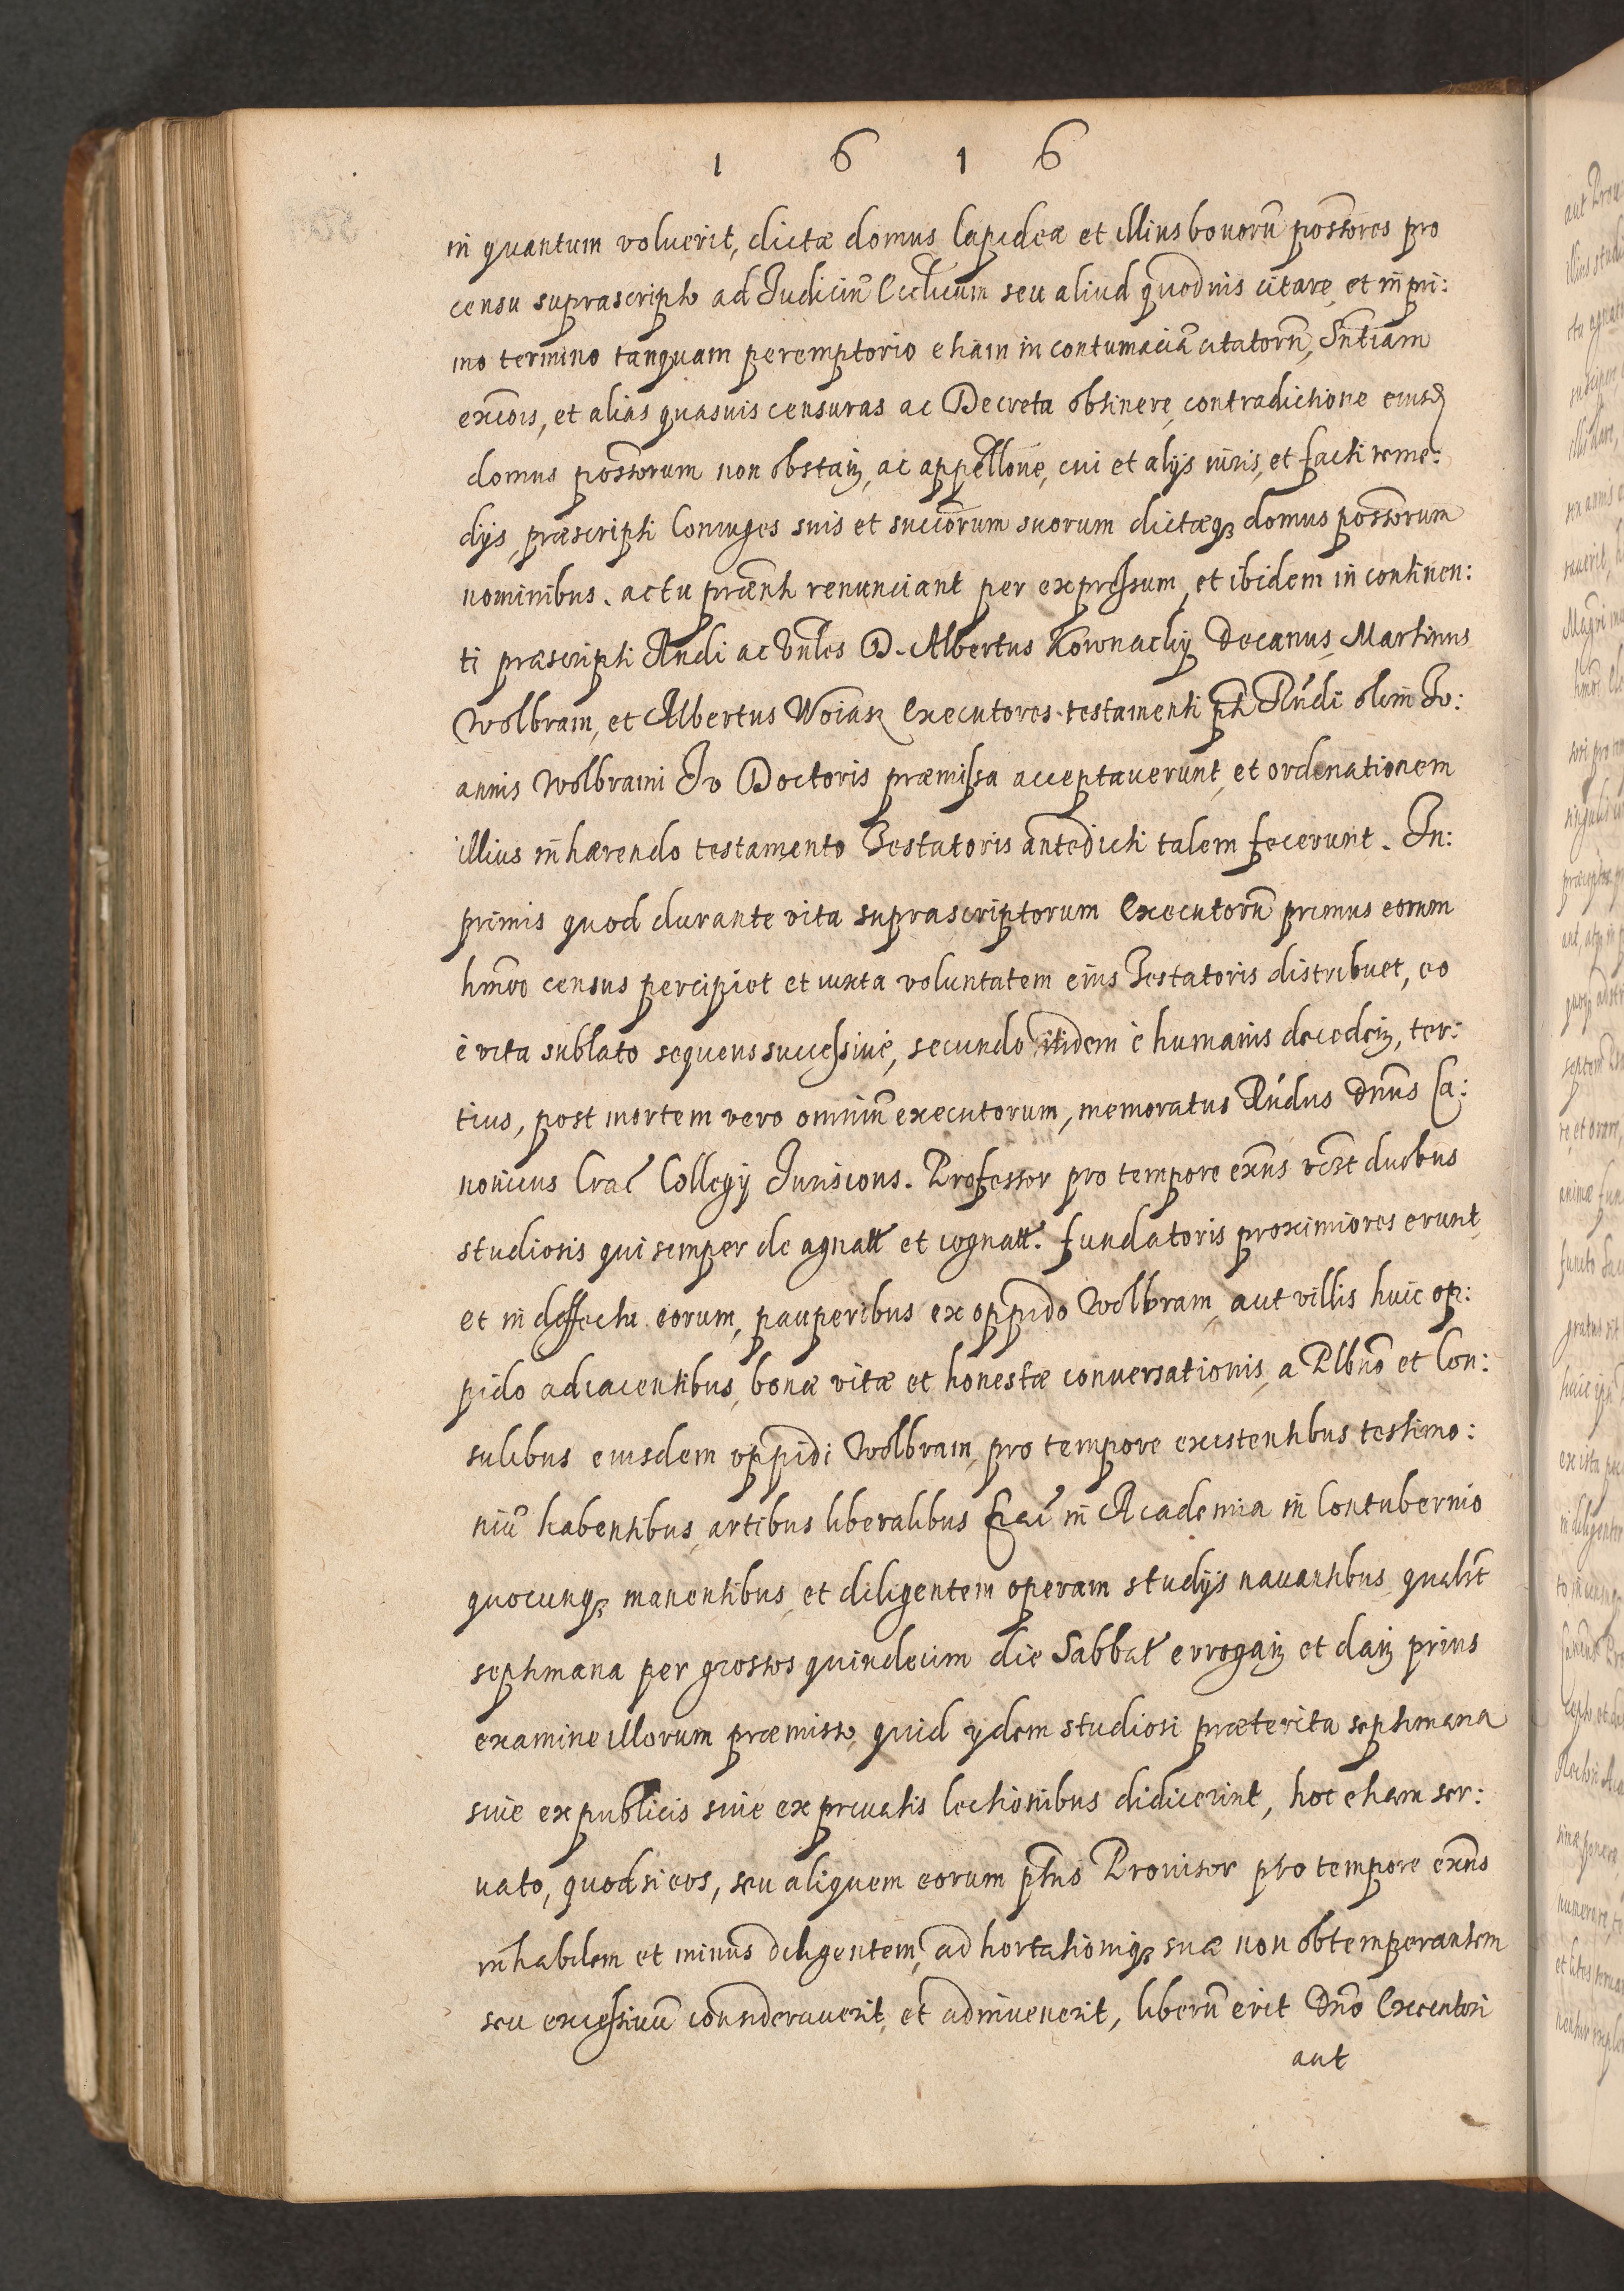 1 6 1 6
in quantum voluerit, dictæ domus lapideæ et illius bonorũ possores pro
censu suprascripto ad Judiciũ Ecclicum seu aliud quoduis citare, et in pri:
mo termino tanquam peremptorio etiam in contumaciã citatorũ, Sñtiam
excõis, et alias quasuis censuras ac Decreta obtinere, contradictione eiusd
domus possorum non obstan, ac appellone, cui et alijs iuris, et facti reme:
dijs, præscripti Coniuges suis et succõrum suorum dictæq domus possorum
nominibus. actu præñti renunciant per expressum, et ibidem in continen:
ti præscripti Andi ac Vnles D. Albertus Kownacky Decanus, Martinus
Wolbram, et Albertus Executores testamenti pti Rñdi olim Jo:
annis Wolbrami Jv Doctoris præmissa acceptauerunt, et ordinationem
illius inhærendo testamento Testatoris antedicti talem fecerunt. In:
primis quod durante vita suprascriptorum Executorũ primus eorum
hmõi census percipiet et iuxta voluntatem eius Testatoris distribuet, eo
è vita sublato sequens successiuè, secundo itidem è humanis deceden, ter:
tius, post mortem vero omniũ executorum, memoratus Rñdus Dñus Ca:
nonicus Crac Collegij Juriscons. Professor pro tempore exñs vczt duobus
studiosis qui semper de agnatt et cognatt. fundatoris proximiores erunt,
et in deffectu eorum, pauperibus ex oppido Wolbram, aut villis huic op:
pido adiacentibus, bonæ vitæ et honestæ conuersationis, a Plbño et Con:
sulibus eiusdem oppidi Wolbram, pro tempore existentibus testimo:
niũ habentibus, artibus liberalibus Crac in Academia in Contubernio
quocunq manentibus, et diligentem operam studijs nauantibus, qualibt
septimana per grossos quindecim die Sabbat errogan et dan prius
examine illorum præmisso, quid ijdem studiosi præterita septimana
siue ex publicis siue ex priuatis lectionibus didicerint, hoc etiam ser:
uato, quod si eos, seu aliquem eorum ptus Prouisor pro tempore exñs
inhabilem et minus diligentem, adhortationiq suæ non obtemperantem
seu excessiuũ considerauerit, et adinuenerit, liberũ erit Dño Executori
aut